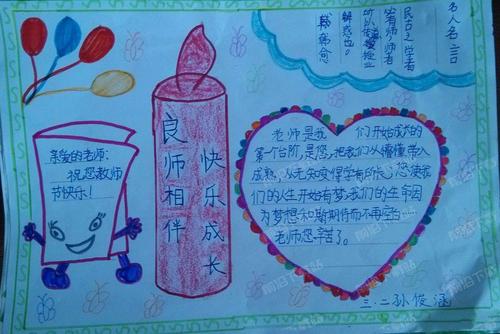 名人名言
古之学者
必有师,师者
所以传道授业
解惑也。
韩愈
良师相伴
快乐成长
亲爱的老师:
祝您教师
节快乐!
老师是我们开始成的
第一个台阶,是您,把我们从懵懂带入
成熟,从无知变得学有所长;您使我
们的人生开始有梦,我们的生命因
为梦想和期待而不再空白……
老师您辛苦了。
三.二孙俊涵